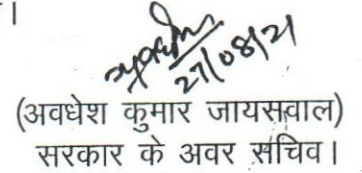 ।
27/08/21
(अवधेश कुमार जायसवाल)
सरकार के अवर सचिव।